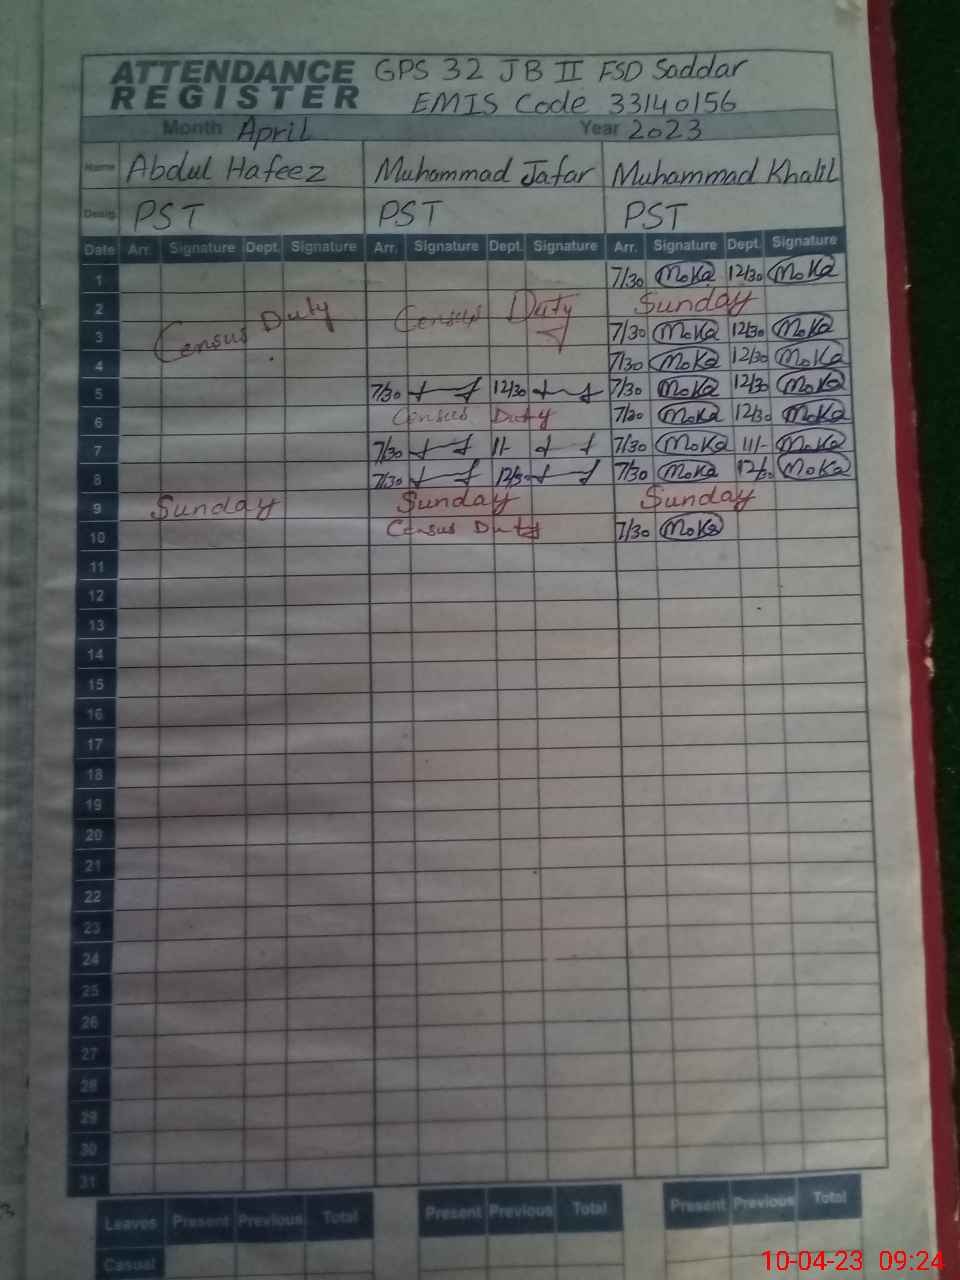 ATTENDANCE REGISTER GPS 32 JB II FSD Saddar
EMIS Code 33140156
Month April Year 2023
Name Abdul Hafeez Muhammad Jafar Muhammad Khalil
Desig. PST PST PST
Date Arr. Signature Dept. Signature Arr. Signature Dept. Signature Arr. Signature Dept. Signature
1 7/30 MoKa 12/30 MoKa
2 Census Duty Census Duty Sunday
3 7/30 MoKa 12/30 MoKa
4 7/30 MoKa 12/30 MoKa
5 7/30 12/30 7/30 MoKa 12/30 MoKa
6 Census Duty 7/30 MoKa 12/30 MoKa
7 7/30 11/- 7/30 MoKa 11/- MoKa
8 7/30 12/30 7/30 MoKa 12/30 MoKa
9 Sunday Sunday Sunday
10 Census Duty 7/30 MoKa
11
12
13
14
15
16
17
18
19
20
21
22
23
24
25
26
27
28
29
30
31
Leaves Present Previous Total Present Previous Total Present Previous Total
Casual
10-04-23 09:24